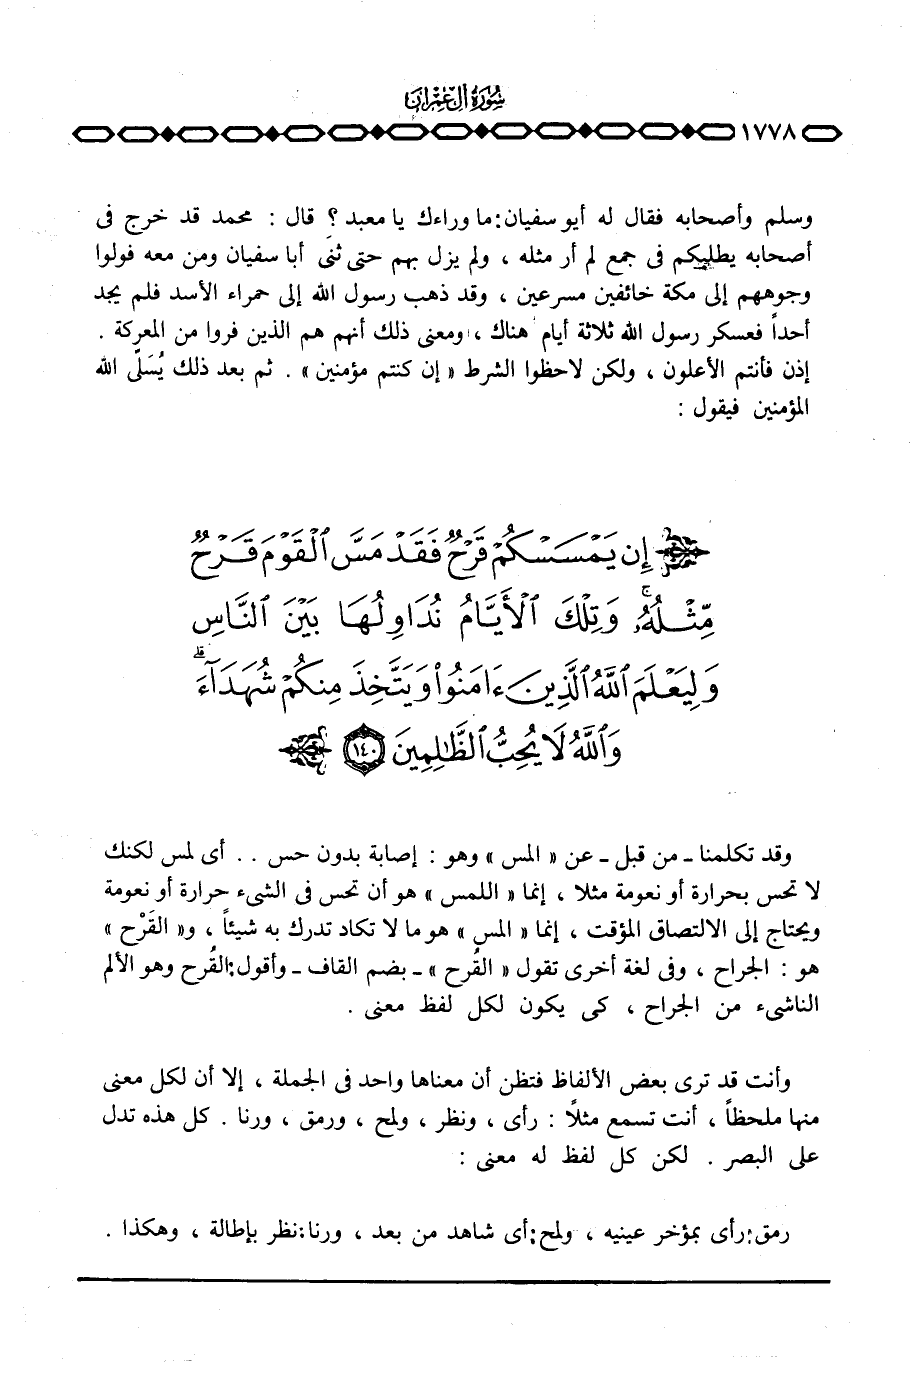 سُورَةُ آلِ عِمْرَانَ
١٧٧٨
وسلم وأصحابه فقال له أبو سفيان : ما وراءك يا معبد ؟ قال : محمد قد خرج فى
أصحابه يطلبكم فى جمع لم أر مثله ، ولم يزل بهم حتى ثنى أبا سفيان ومن معه فولوا
وجوههم إلى مكة خائفين مسرعين ، وقد ذهب رسول الله إلى حمراء الأسد فلم يجد
أحداً فعسكر رسول الله ثلاثة أيام هناك ، ومعنى ذلك أنهم هم الذين فروا من المعركة .
إذن فأنتم الأعلون ، ولكن لاحظوا الشرط « إن كنتم مؤمنين » . ثم بعد ذلك يُسَلِّى الله
المؤمنين فيقول :
إِن يَمْسَسْكُمْ قَرْحٌ فَقَدْ مَسَّ ٱلْقَوْمَ قَرْحٌ
مِّثْلُهُۥ ۚ وَتِلْكَ ٱلْأَيَّامُ نُدَاوِلُهَا بَيْنَ ٱلنَّاسِ
وَلِيَعْلَمَ ٱللَّهُ ٱلَّذِينَ ءَامَنُوا۟ وَيَتَّخِذَ مِنكُمْ شُهَدَآءَ ۗ
وَٱللَّهُ لَا يُحِبُّ ٱلظَّـٰلِمِينَ ١٤٠
وقد تكلمنا ـ من قبل ـ عن « المس » وهو : إصابة بدون حس . . أى لمس لكنك
لا تحس بحرارة أو نعومة مثلا ، إنما « اللمس » هو أن تحس فى الشىء حرارة أو نعومة
ويحتاج إلى الالتصاق المؤقت ، إنما « المس » هو ما لا تكاد تدرك به شيئاً ، و« القَرْح »
هو : الجراح ، وفى لغة أخرى تقول « القُرح » ـ بضم القاف ـ وأقول : القُرح وهو الألم
الناشىء من الجراح ، كى يكون لكل لفظ معنى .
وأنت قد ترى بعض الألفاظ فتظن أن معناها واحد فى الجملة ، إلا أن لكل معنى
منها ملحظاً ، أنت تسمع مثلًا : رأى ، ونظر ، ولمح ، ورمق ، ورنا . كل هذه تدل
على البصر . لكن كل لفظ له معنى :
رمق : رأى بمؤخر عينيه ، ولمح : أى شاهد من بعد ، ورنا : نظر بإطالة ، وهكذا .